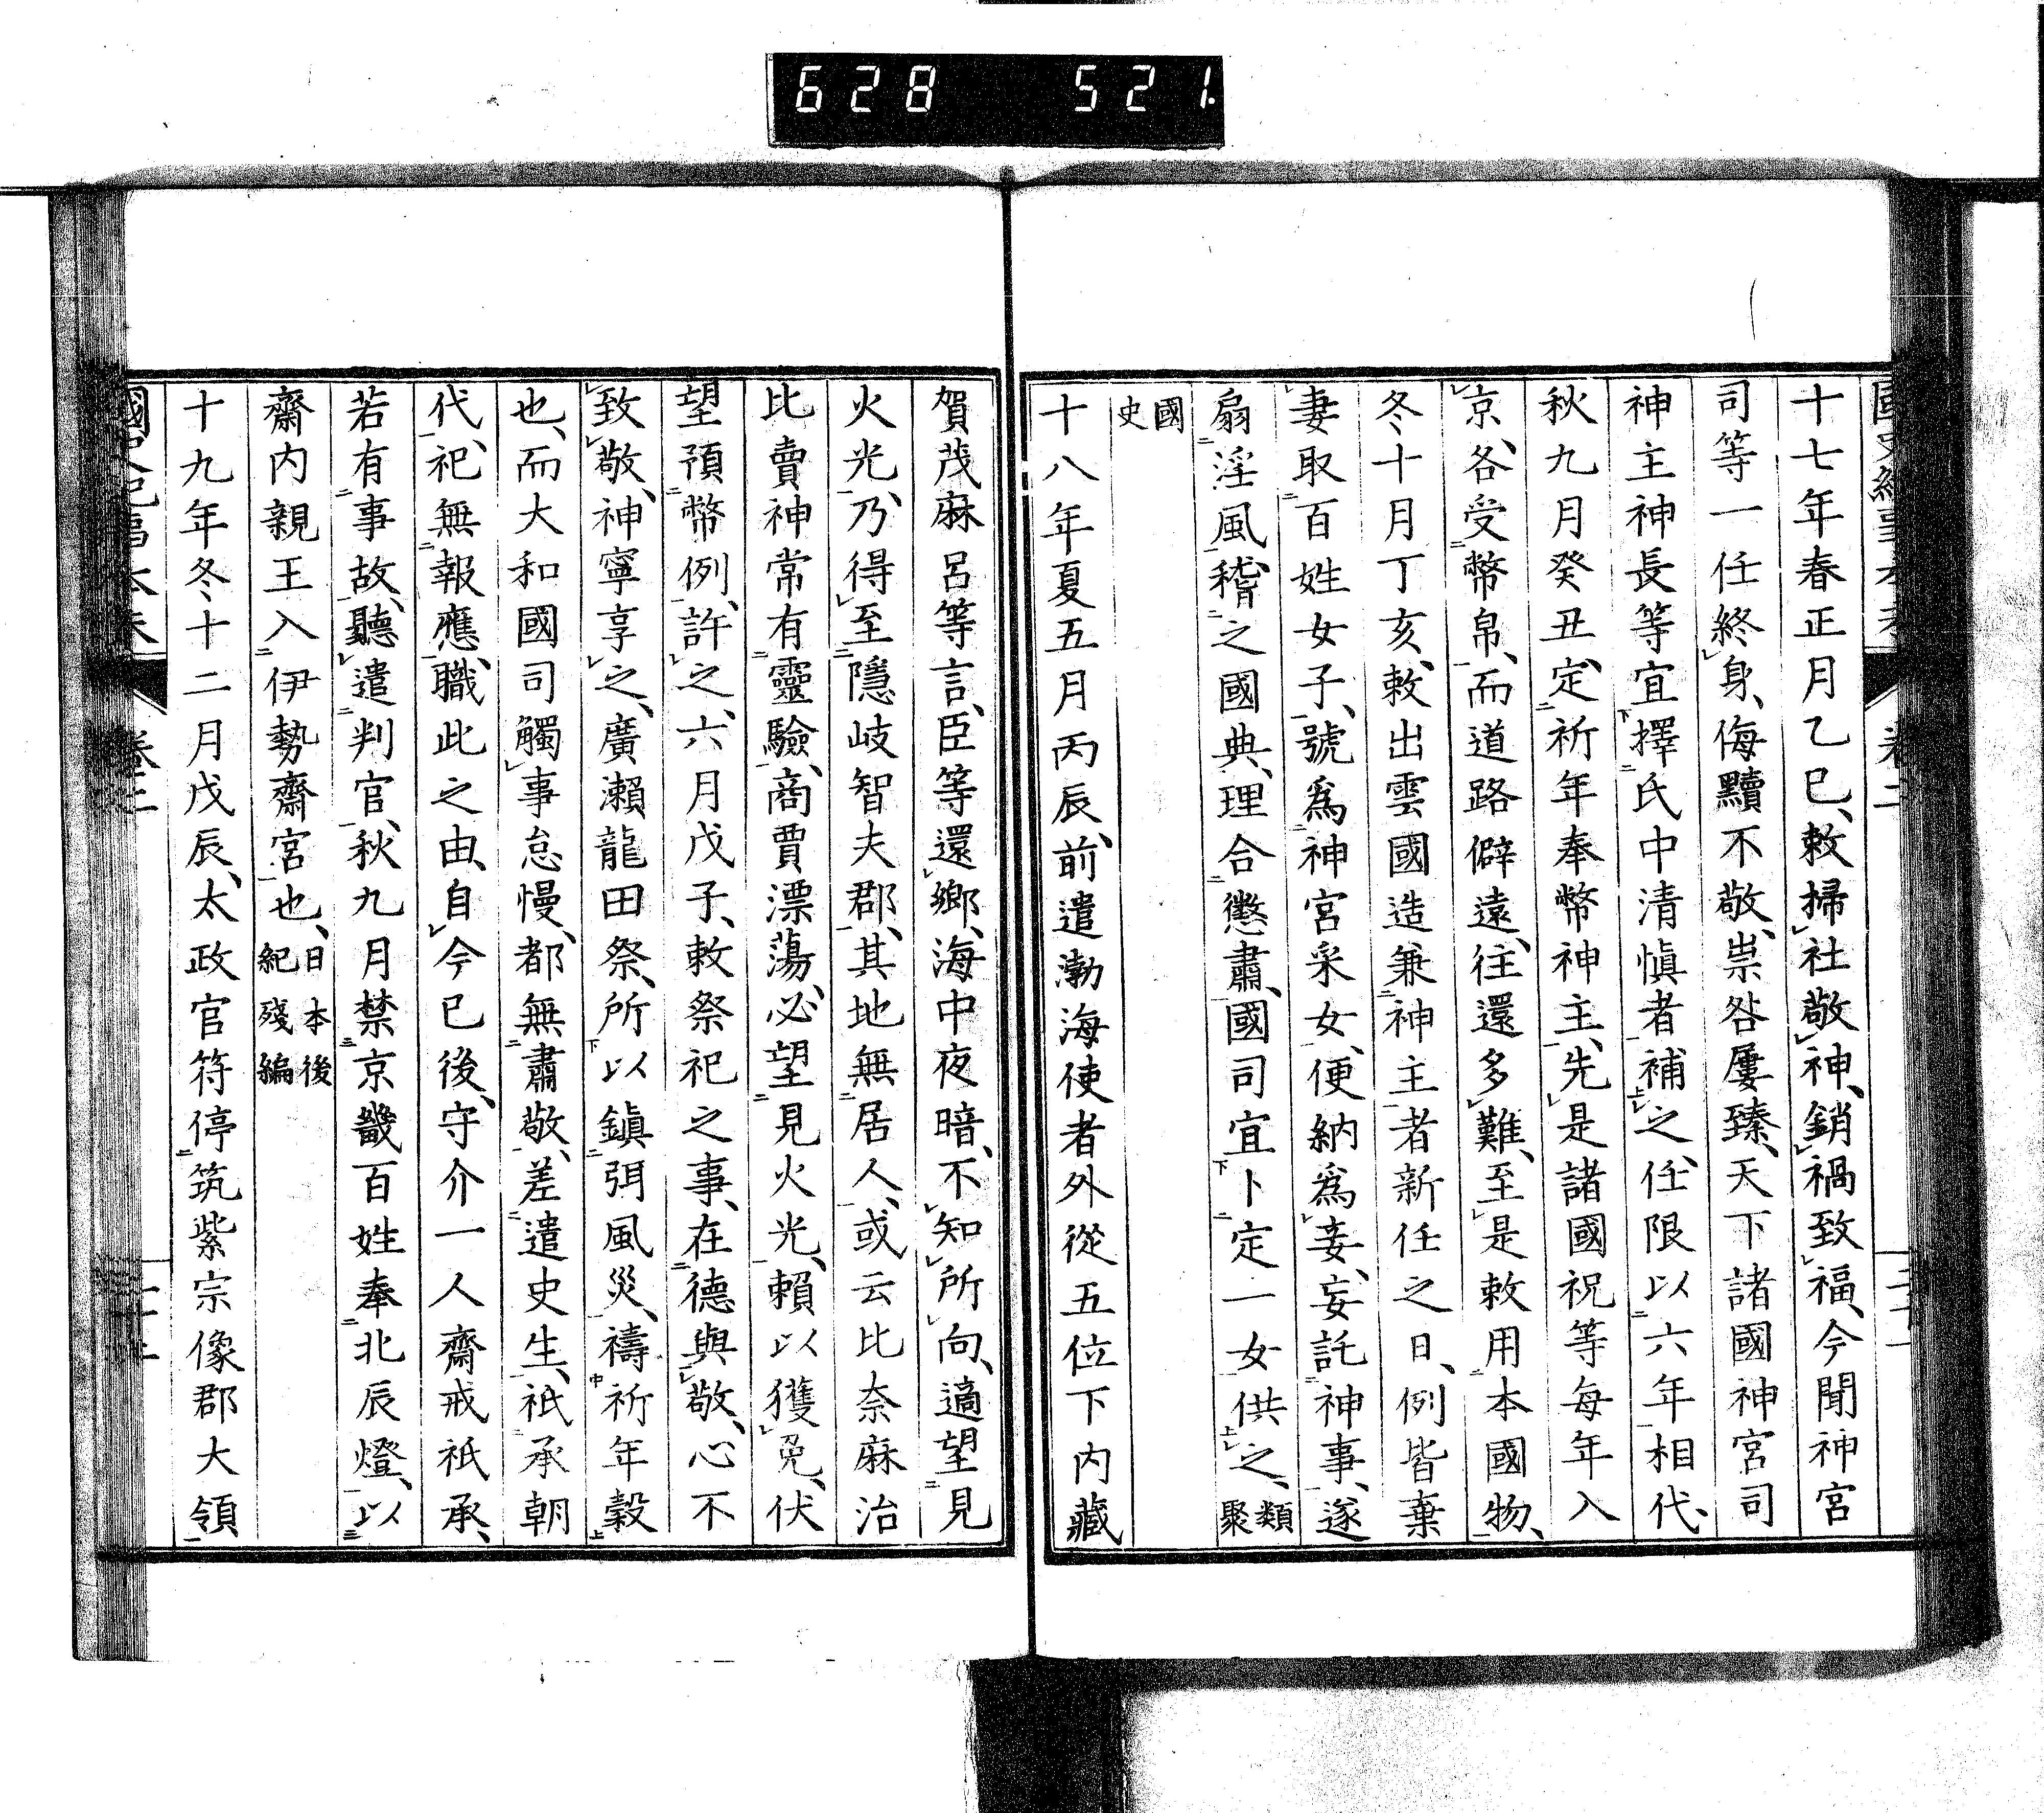 628 521
十七年春正月乙巳、敕掃社敬神、銷禍致福、今聞神宮
司等一任終身、侮黷不敬、祟咎屢臻、天下諸國神宮司
神主神長等宜擇氏中清愼者補之、任限以六年相代、
秋九月癸丑、定祈年奉幣神主、先是諸國祝等每年入
京、各受幣帛、而道路僻遠、往還多難、至是敕用本國物、
冬十月丁亥、敕出雲國造兼神主者新任之日、例皆棄
妻取百姓女子、號爲神宮采女、便納爲妾、妄託神事、遂
扇淫風、稽之國典、理合懲肅、國司宜卜定一女供之、類聚
國史
十八年夏五月丙辰、前遣渤海使者外從五位下內藏
賀茂麻呂等言、臣等還鄉、海中夜暗、不知所向、適望見
火光、乃得至隱岐智夫郡、其地無居人、或云比奈麻治
比賣神常有靈驗、商賈漂蕩、必望見火光、賴以獲免、伏
望預幣例、許之、六月戊子、敕祭祀之事、在德與敬、心不
致敬、神寧享之、廣瀨龍田祭、所以鎭弭風災、禱祈年穀
也、而大和國司觸事怠慢、都無肅敬、差遣史生、祇承朝
代、祀無報應、職此之由、自今已後、守介一人齋戒祇承、
若有事故、聽遣判官、秋九月禁京畿百姓奉北辰燈、以
齋內親王入伊勢齋宮也、日本後紀殘編
十九年冬十二月戊辰、太政官符停筑紫宗像郡大領